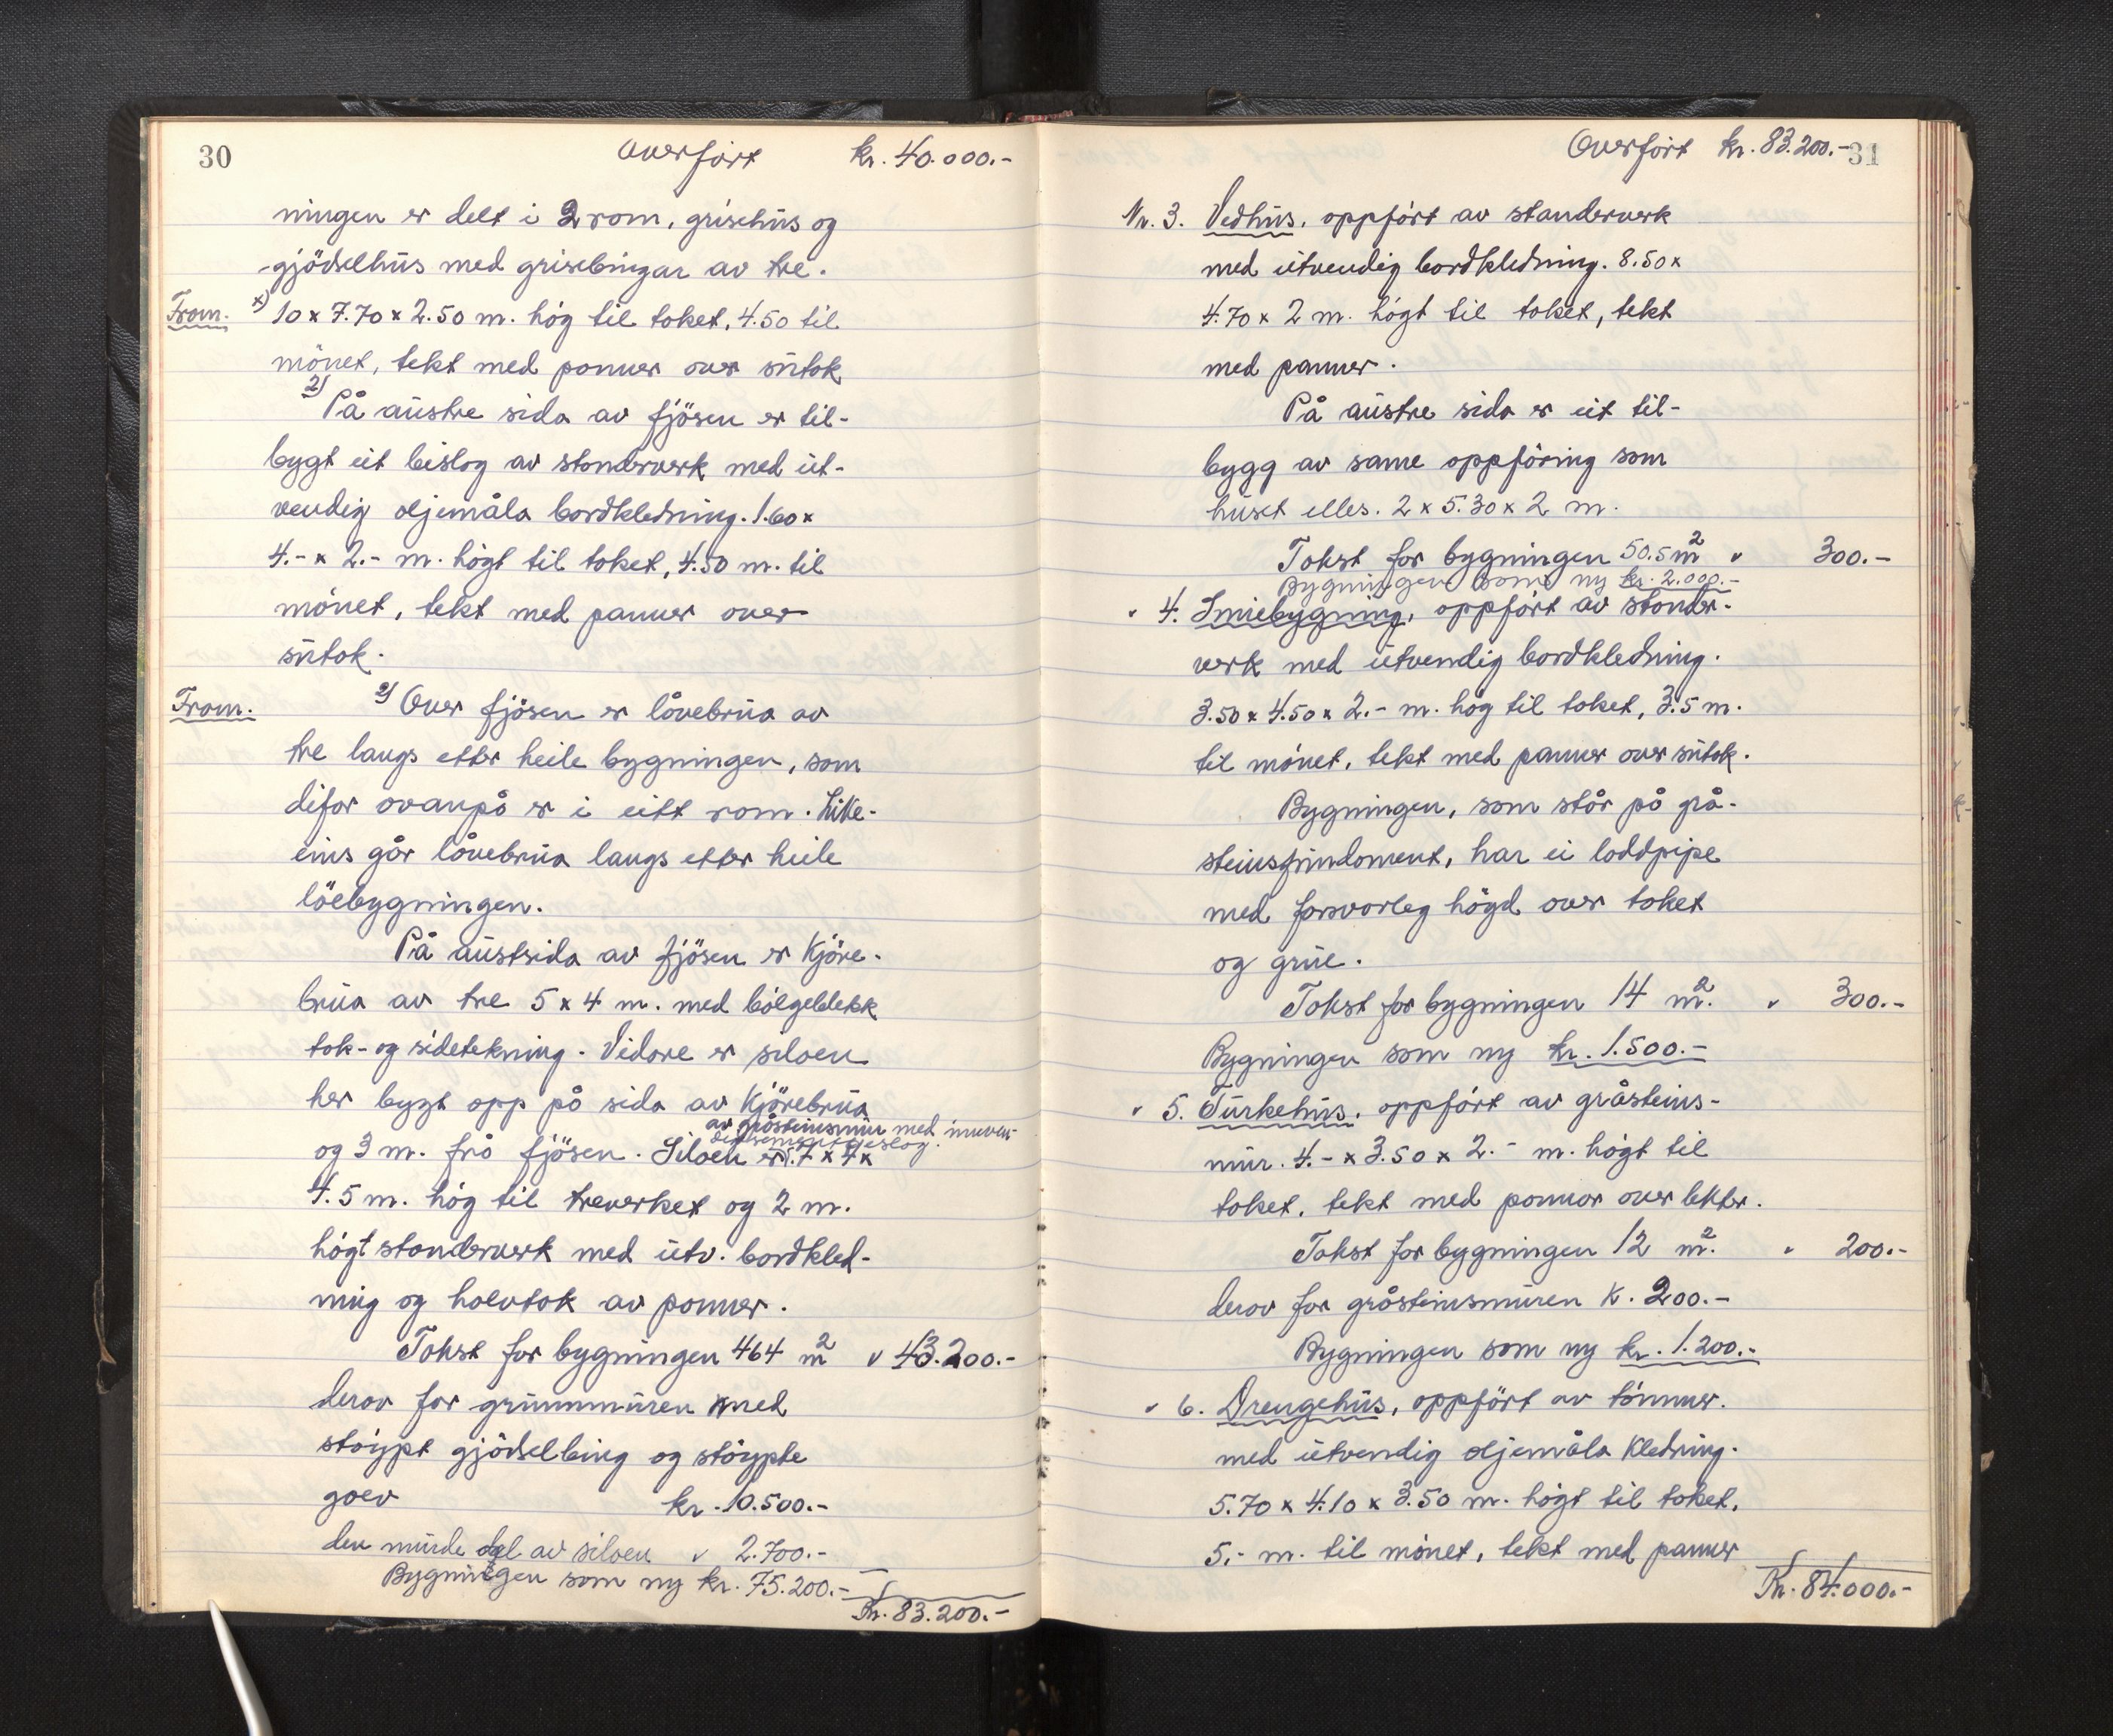 30
Overfört kr. 40.000.-
ningen er delt i 2 rom, grisehus og
gjödselhus med grisebingar av tre.
From. x) 10 x 7.70 x 2.50 m. hög til taket, 4.50 til
mönet, tekt med panner over sutak
2) På austre sida av fjösen er til-
bygt eit bislag av standverk med ut-
vendig oljemåla bordkledning. 1.60 x
4.- x 2.- m. högt til taket, 4.50 m. til
mönet, tekt med panner over
sutak.
From. 2) Over fjösen er låvebrua av
tre langs etter heile bygningen, som
difor ovanpå er i eitt rom. Like-
eins går låvebrua langs etter heile
löebygningen.
På austsida av fjösen er Kjöre-
brua av tre 5 x 4 m. med bölgeblekk
tak- og sidetekning. Vidare er siloen
her bygt opp på sida av Kjörebrua
av gråsteinsmur med innven-
dig sementpuslag.
og 3 m. frå fjösen. Siloen er 5.7 x 4 x
4.5 m. hög til treverket og 2 m.
högt standerverk med utv. bordkled-
ning og halvtak av panner.
Takst for bygningen 464 m2 " 43.200.-
derav for grunnmuren med
stöypt gjödselbing og stöypte
golv kr. 10.500.-
den murde del av siloen " 2.700.-
Bygningen som ny kr. 75.200.-
Kr. 83.200.-
Overfört kr. 83.200.- 31
Nr. 3. Vedhus, oppfört av standerverk
med utvendig bordkledning. 8.50 x
4.70 x 2 m. högt til taket, tekt
med panner.
På austre sida er eit til-
bygg av same oppföring som
huset elles. 2 x 5.30 x 2 m.
Takst for bygningen 50.5 m2 " 300.-
Bygningen som ny kr. 2.000.-
" 4. Smiebygning, oppfört av stander-
verk med utvendig bordkledning.
3.50 x 4.50 x 2.- m. hög til taket, 3.5 m.
til mönet, tekt med panner over sutak.
Bygningen, som står på grå-
steinsfundament, har ei loddpipe
med forsvarleg högd over taket
og grue.
Takst for bygningen 14 m2. " 300.-
Bygningen som ny kr. 1.500.-
" 5. Turkehus, oppfört av gråsteins-
mur. 4.- x 3.50 x 2.- m. högt til
taket, tekt med pannor over lekter.
Takst for bygningen 12 m2. " 200.-
derav for gråsteinsmuren k. 200.-
Bygningen som ny kr. 1.200.-
" 6. Drengehus, oppfört av tömmer.
med utvendig oljemåla kledning.
5.70 x 4.10 x 3.50 m. högt til taket,
5.- m. til mönet, tekt med panner
Kr. 84.000.-